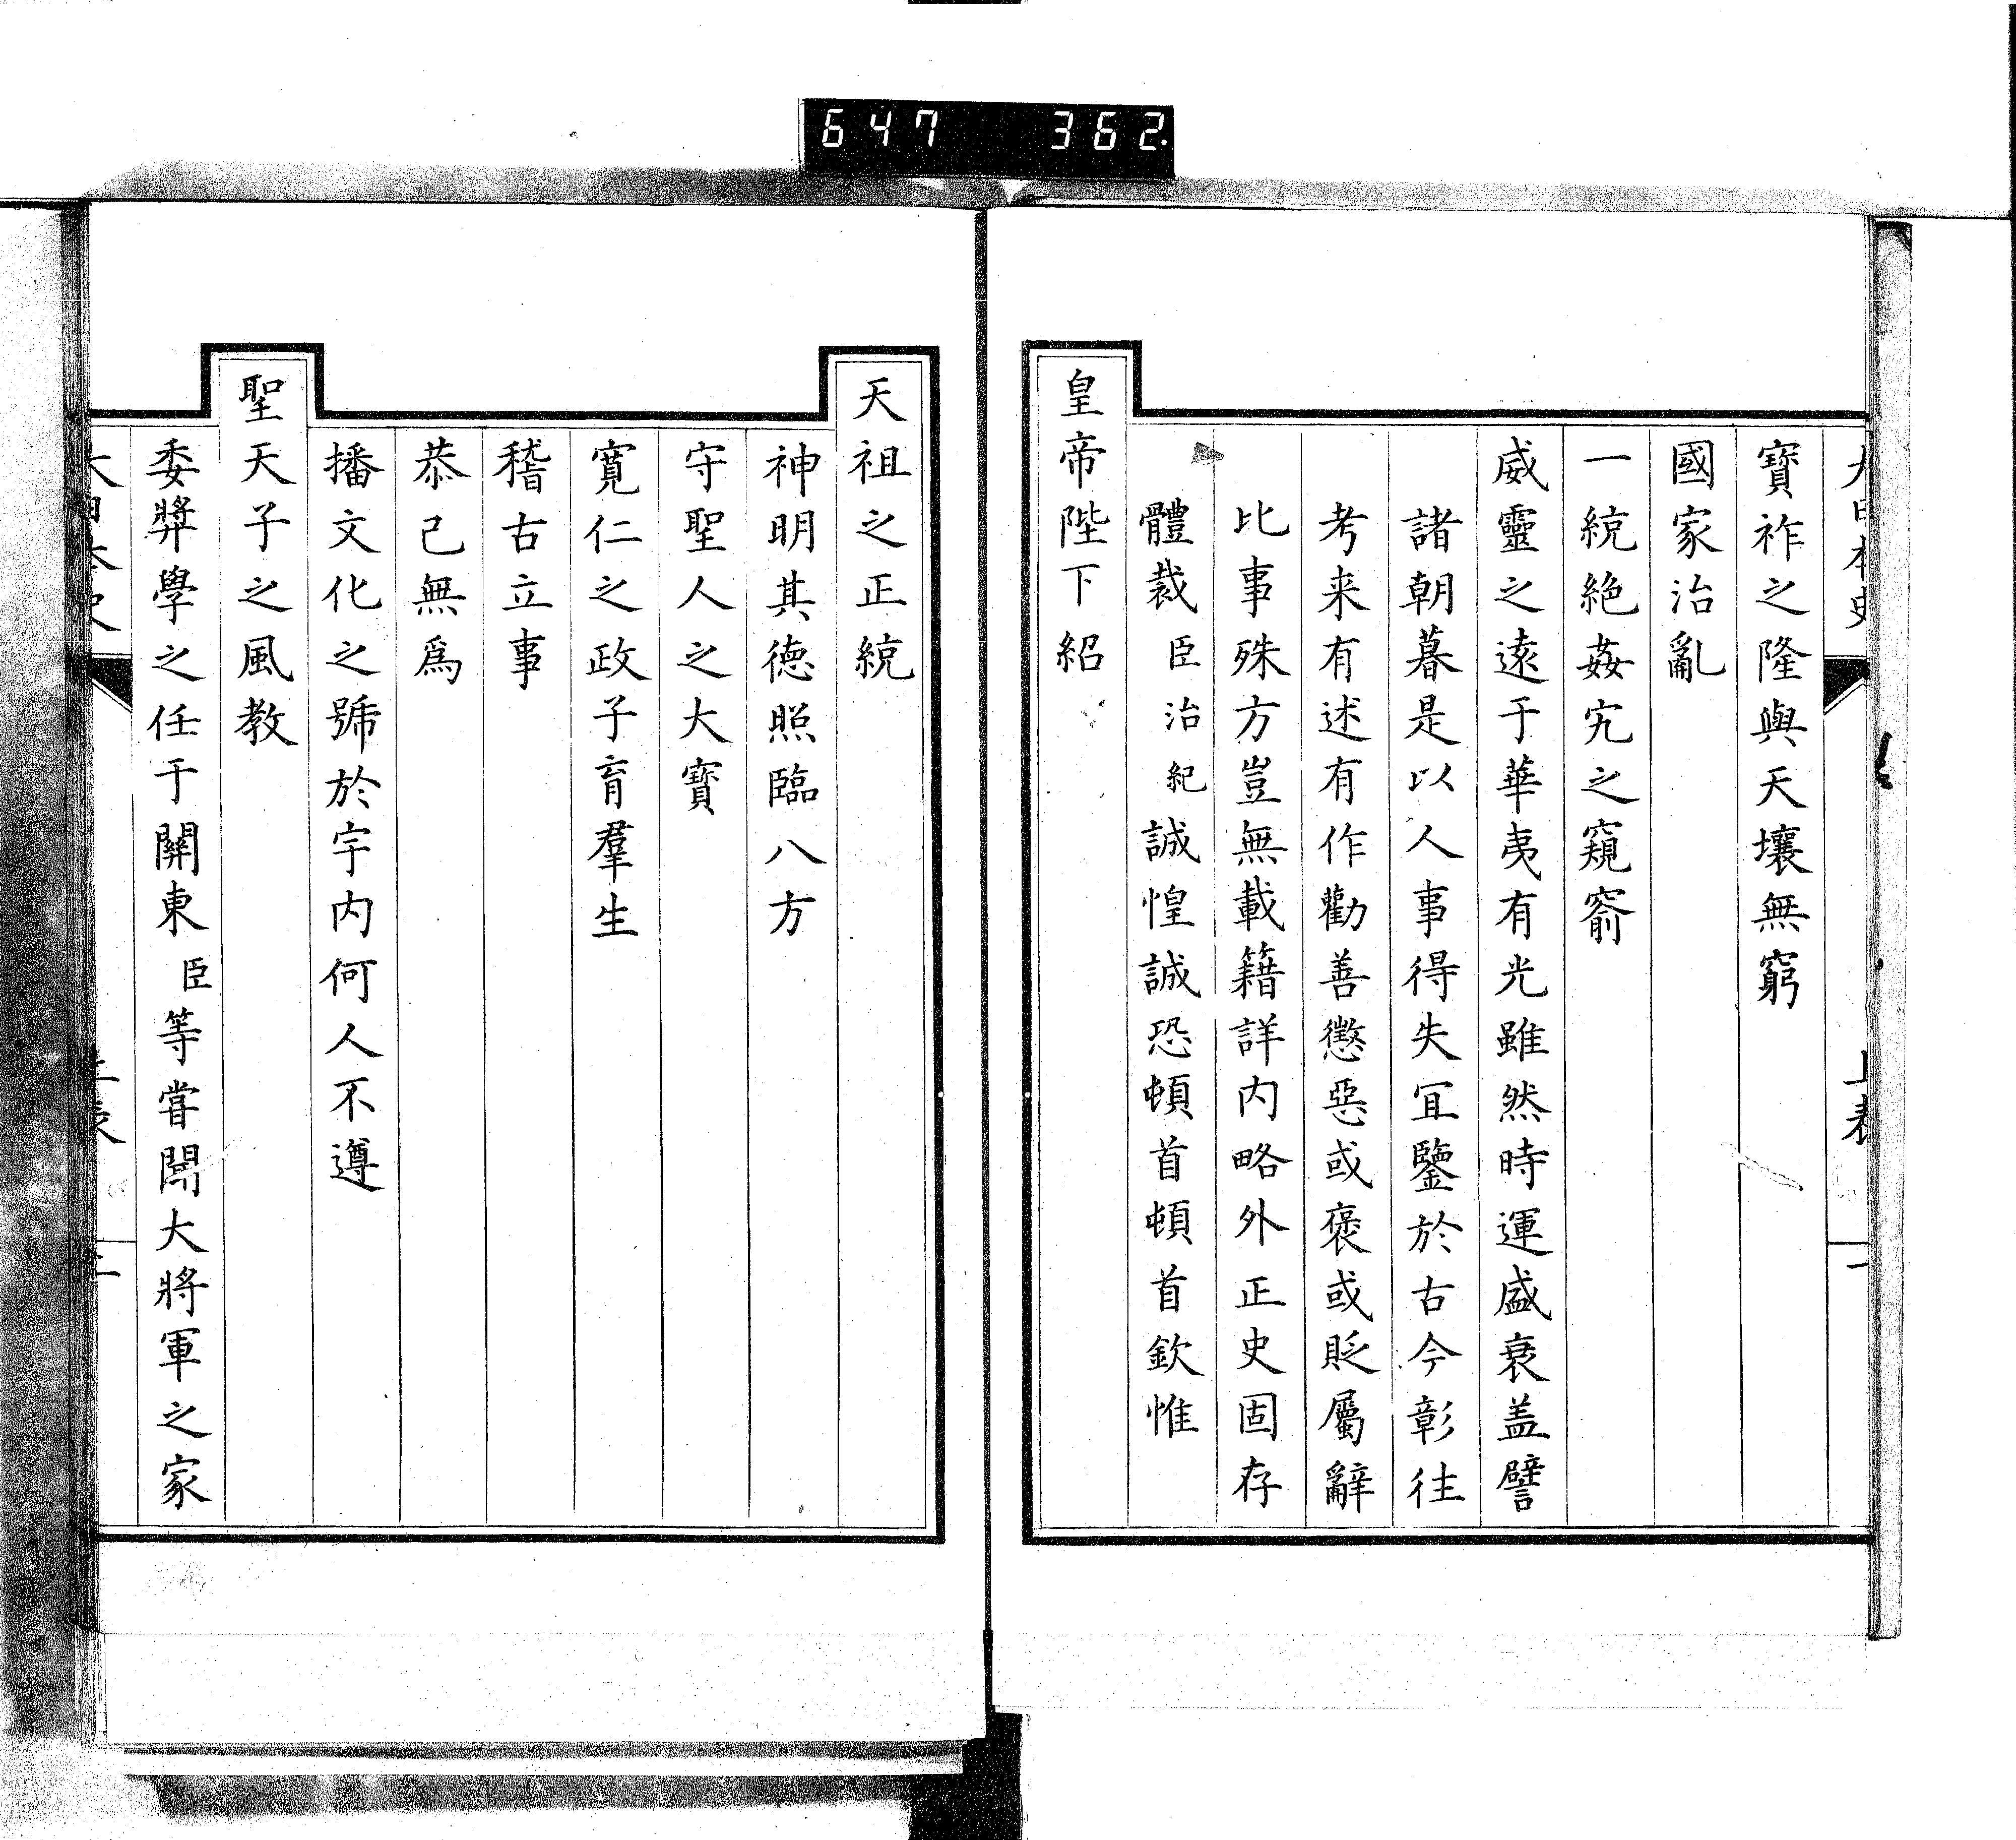 647 362.
大日本史 上表 一
寶祚之隆與天壤無窮
國家治亂
一統絶姦宄之窺窬
威靈之遠于華夷有光雖然時運盛衰盖譬
諸朝暮是以人事得失冝鑒於古今彰往
考来有述有作勸善懲惡或褒或貶屬辭
比事殊方豈無載籍詳内略外正史固存
體裁臣治紀誠惶誠恐頓首頓首欽惟
皇帝陛下紹
天祖之正統
神明其德照臨八方
守聖人之大寶
寛仁之政子育羣生
稽古立事
恭己無爲
播文化之號於宇内何人不遵
聖天子之風教
委弉學之任于關東臣等嘗聞大將軍之家
大日本史 上表